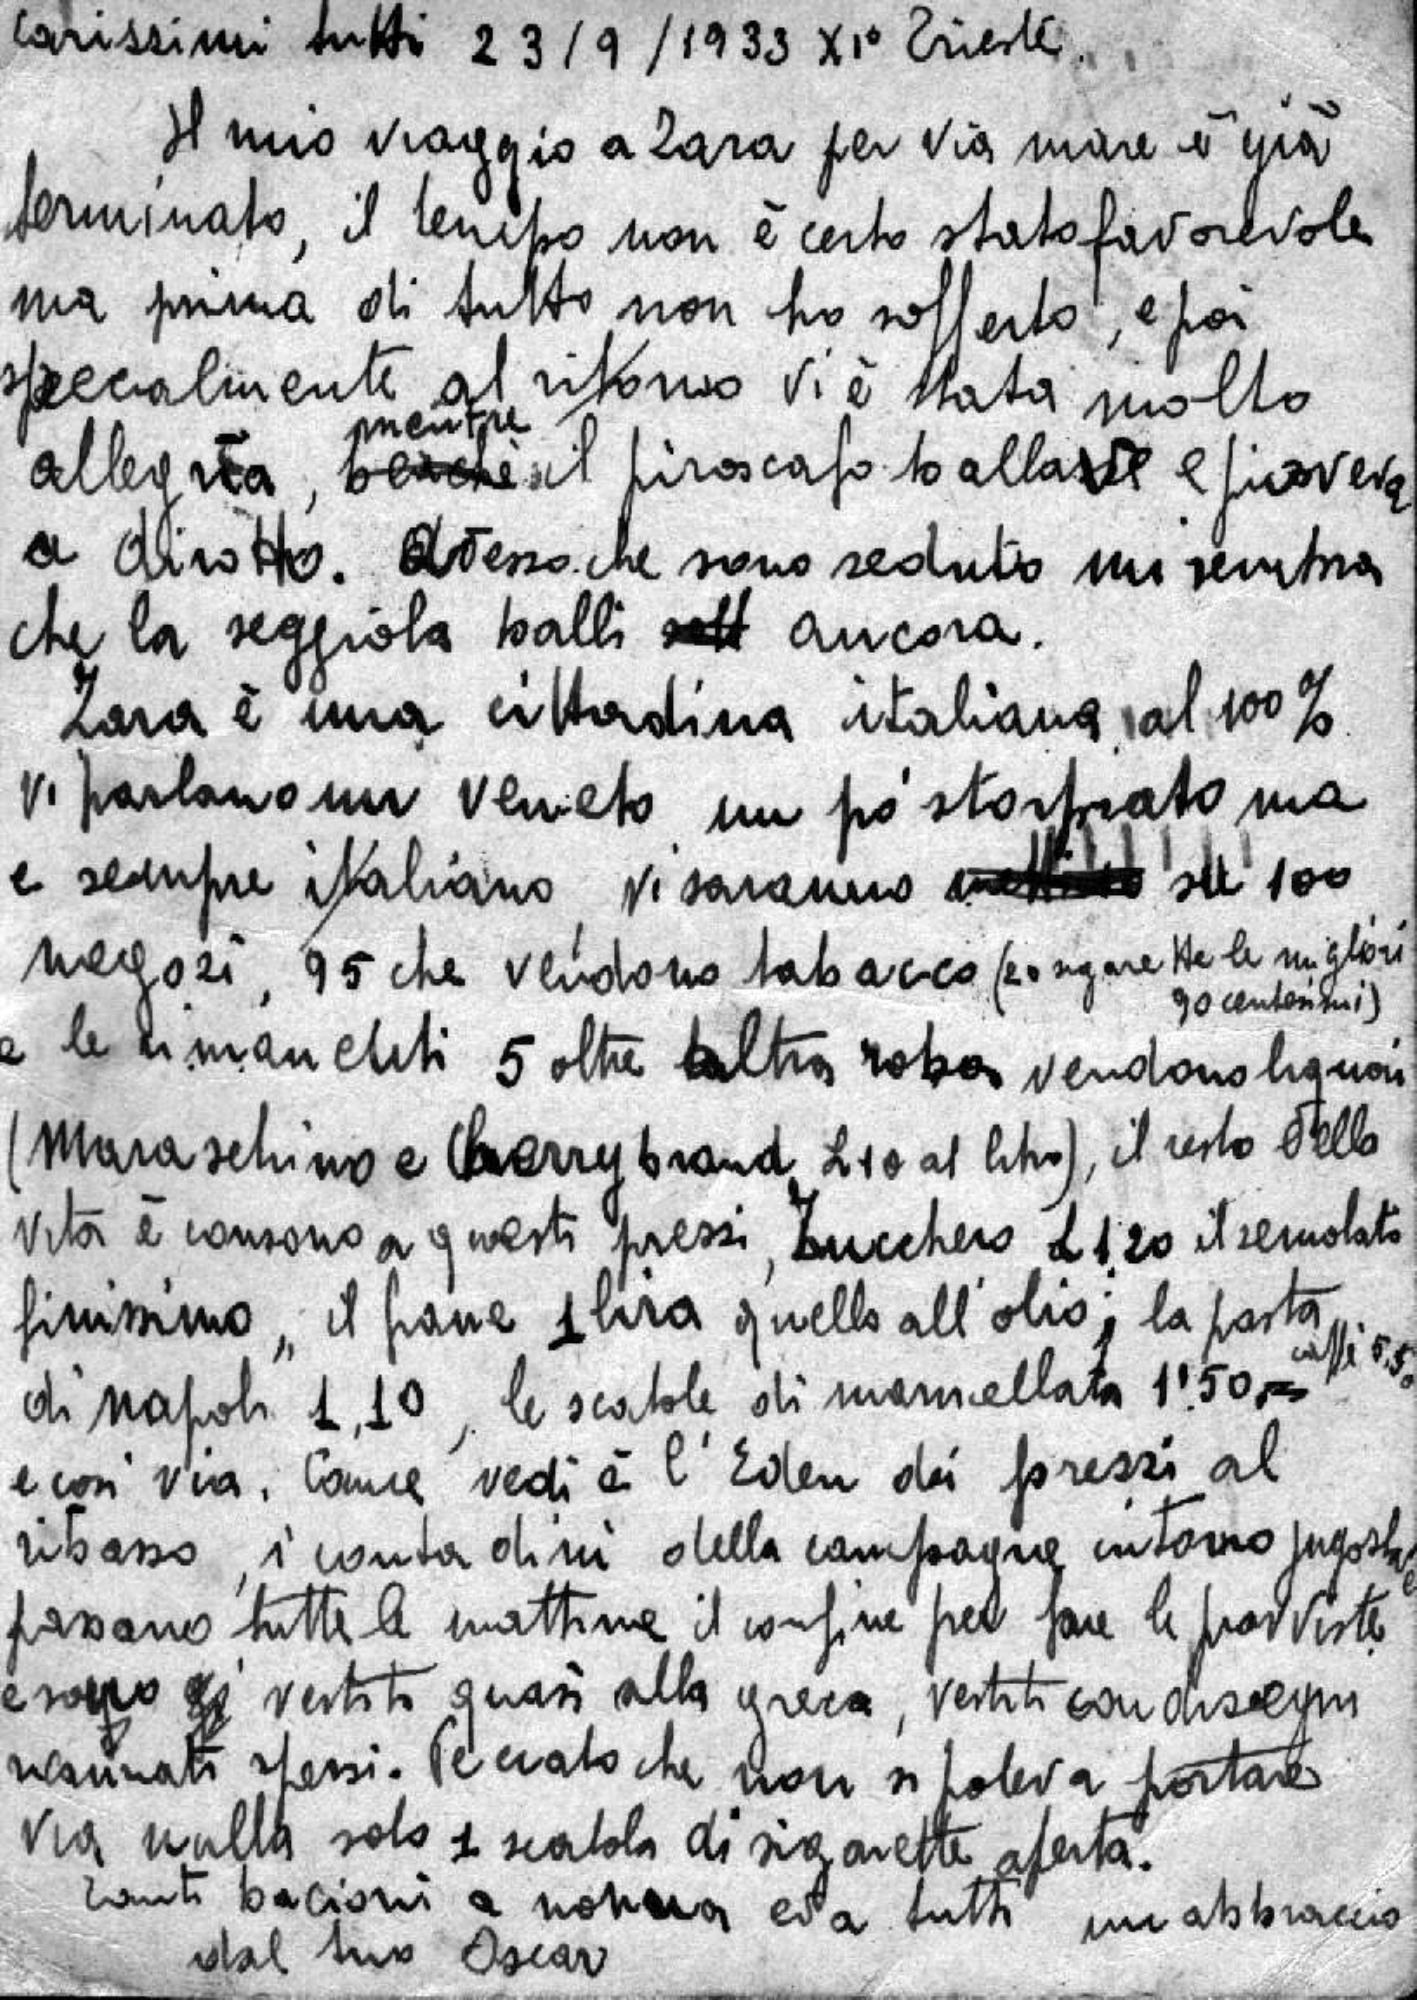 Carissimi tutti 23/9/1933 XI° Trieste.
Il mio viaggio a Zara per via mare è già
terminato, il tempo non è certo stato favorevole
ma prima di tutto non ho sofferto, e poi
specialmente al ritorno vi è stata molto
mentre
allegria, benchè il piroscafo ballava e pioveva
a dirotto. Adesso che sono seduto mi sembra
che la seggiola balli ancora.
Zara è una cittadina italiana al 100%
vi parlano un veneto un pó storpiato ma
e sempre italiano vi saranno su 100
negozi, 95 che vendono tabacco (20 sigarette le migliori
90 centesimi)
e le rimanenti 5 oltre altra roba vendono liquori
(Maraschino e Cherry brand L 10 al litro), il resto della
vita è consono a questi pressi, Zucchero L 1,20 il semolato
finissimo, il pane 1 lira quello all'olio; la pasta
di Napoli 1,10, le scatole di marmellata 1'.50 caffè 5.50
e così via. Come vedi è l'Eden dei prezzi al
ribasso, i contadini della campagne intorno jugoslave
passano tutte le mattine il confine per fare le provviste
e sono vestiti quasi alla greca, vestiti con disegni
ricamati spessi. Peccato che non si poteva portare
via nulla solo 1 scatola di sigarette aperta.
Tanti bacioni a nonna ed a tutti un abbraccio
dal tuo Oscar